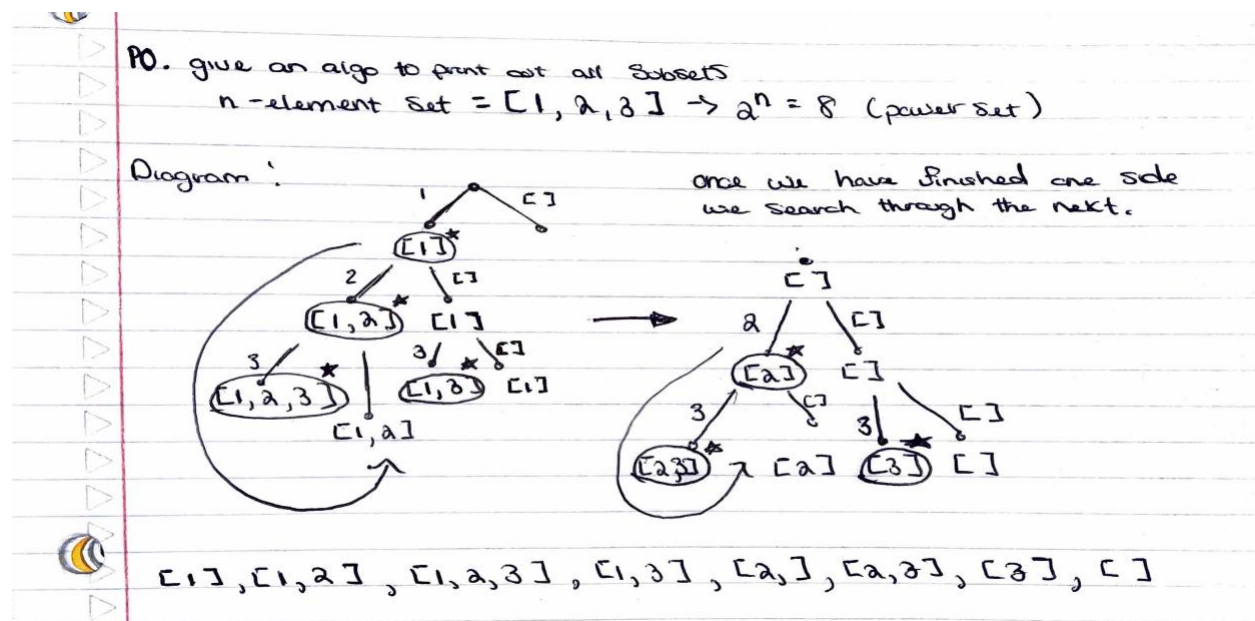 PO. give an algo to print out all Subsets
n-element set = [1, 2, 3] -> 2ⁿ = 8 (power set)
Diagram :
once we have finished one side
we search through the next.
1 []
[1]*
2 []
[1,2]* [1]
3 3 []
[1,2,3]* [1,3]* [1]
[1,2]
[]
2 []
[2]* []
3 [] 3 []
[2,3]* [2] [3]* []
[1], [1,2], [1,2,3], [1,3], [2,], [2,3], [3], []